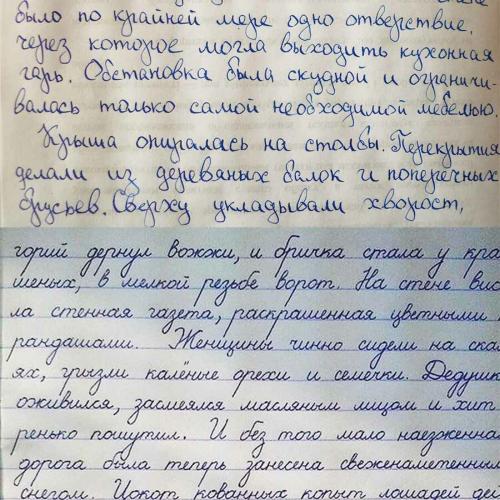 было по крайней мере одно отверствие,
через которое могла выходить кухонная
гарь. Обстановка была скудной и ограничи-
валась только самой необходимой мебелью.
Крыша опиралась на столбы. Перекрытия
делали из деревяных балок и поперечных
брусьев. Сверху укладывали хворост,
горий дернул вожжи, и бричка стала у кра
шеных, в мелкой резьбе ворот. На стене вис
ла стенная газета, раскрашенная цветными
рандашами. Женщины чинно сидели на ска
ях, грызли калёные орехи и семечки. Дедушк
оживился, засмеялся масляным лицом и хит
ренько пошутил. И без того мало наезженна
дорога была теперь занесена свеженаметенны
снегом. Цокот кованных копыт лошадей